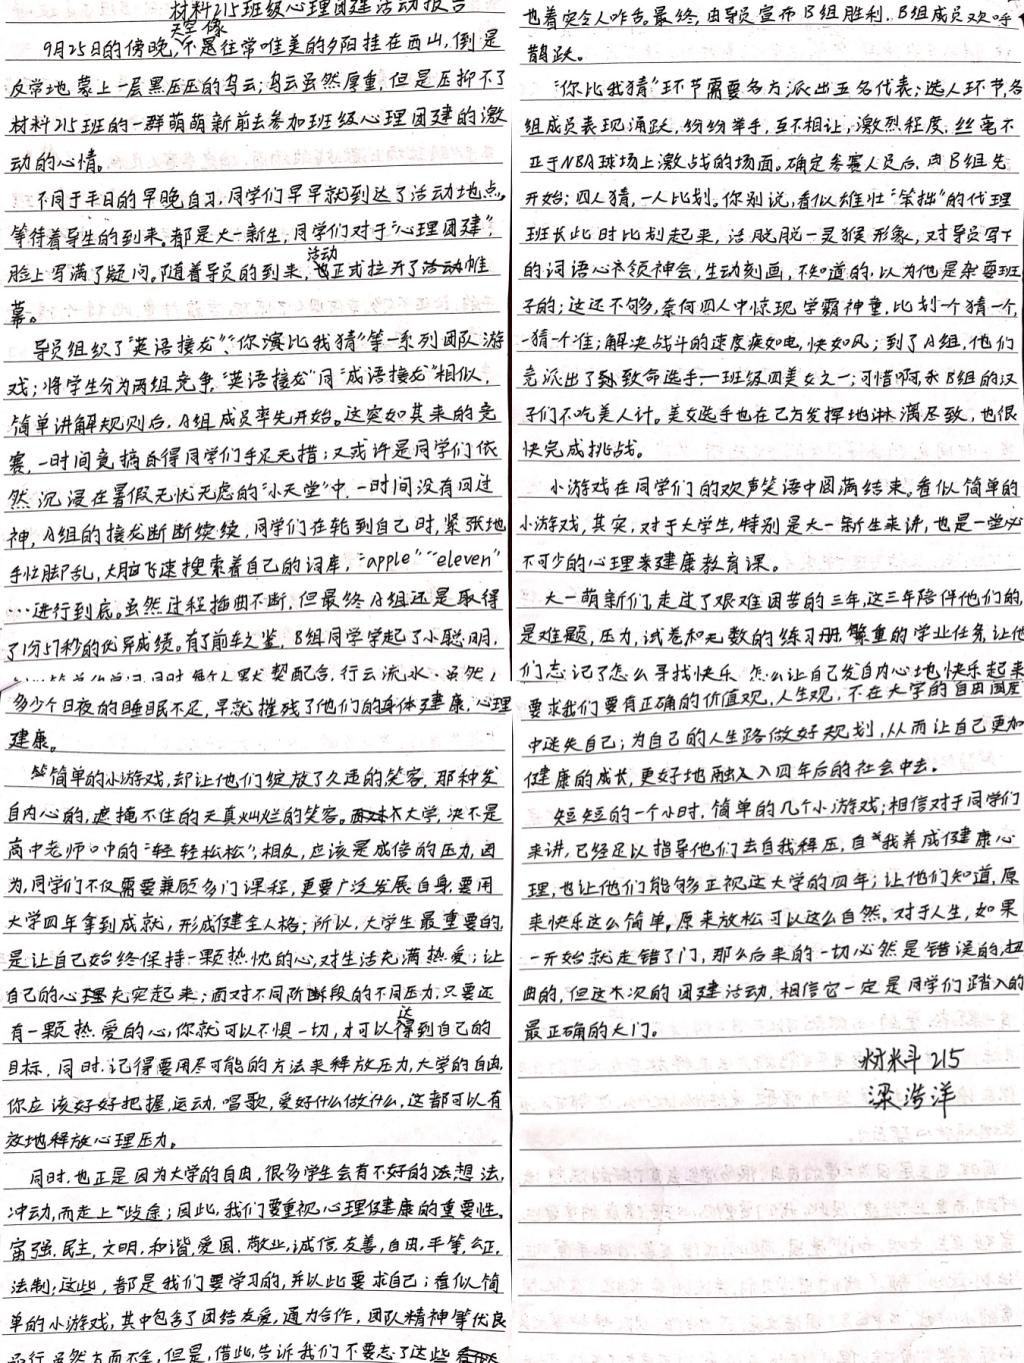 材料215班级心理团建活动报告
9月25日的傍晚,天空不像往常唯美的夕阳挂在西山,倒是
反常地蒙上一层黑压压的乌云;乌云虽然厚重,但是压抑不了
材料215班的一群萌萌新前去参加班级心理团建的激
动的心情。
不同于平日的早晚自习,同学们早早就到达了活动地点。
等待着导生的到来。都是大一新生,同学们对于“心理团建”,
脸上写满了疑问。随着导员的到来,活动也正式拉开了帷
幕。
导员组织了“英语接龙”、“你演比我猜”等一系列团队游
戏;将学生分为两组竞争,“英语接龙”同“成语接龙”相似,
简单讲解规则后,A组成员率先开始。这突如其来的竞
赛,一时间竟搞的得同学们手足无措;又或许是同学们依
然沉浸在暑假无忧无虑的“小天堂”中,一时间没有回过
神,A组的接龙断断续续,同学们在轮到自己时,紧张地
手忙脚乱,大脑飞速搜索着自己的词库,“apple”“eleven”
…进行到底。虽然过程插曲不断,但最终A组还是取得
了1分57秒的优异成绩。有了前车之鉴,B组同学学起了小聪明,
每个人默契配合,行云流水.虽然,
多少个日夜的睡眠不足,早就摧残了他们的身体健康,心理
健康。
简单的小游戏,却让他们绽放了久违的笑容,那种发
自内心的,遮掩不住的天真灿烂的笑容。大学,决不是
高中老师口中的“轻轻松松”,相反,应该是成倍的压力,因
为,同学们不仅需要兼顾多门课程,更要广泛发展自身,要用
大学四年拿到成就,形成健全人格;所以,大学生最重要的,
是让自己始终保持一颗热忱的心,对生活充满热爱;让
自己的心理充实起来;面对不同阶段的不同压力,只要还
有一颗热爱的心,你就可以不惧一切,才可以达到自己的
目标.同时.记得要用尽可能的方法来释放压力,大学的自由,
你应该好好把握,运动,唱歌,爱好什么做什么,这都可以有
效地释放心理压力。
同时.也正是因为大学的自由,很多学生会有不好的想法,
冲动,而走上歧途;因此,我们要重视心理健康的重要性,
富强,民主,文明,和谐,爱国,敬业,诚信,友善,自由,平等,公正,
法制;这些,都是我们要学习的,并以此要求自己;看似简
单的小游戏,其中包含了团结友爱,通力合作,团队精神等优良
品行,虽然方面不全,但是,借此,告诉我们不要忘了这些
也着实令人咋舌.最终,由导员宣布B组胜利.B组成员欢呼
鹊跃。
“你比我猜”环节需要各方派出五名代表;选人环节,各
组成员表现涌跃,纷纷举手,互不相让,激烈程度,丝毫不
亚于NBA球场上激战的场面。确定参赛人员后,由B组先
开始;四人猜,一人比划。你别说,看似雄壮“笨拙”的代理
班长此时比划起来,活脱脱一灵猴形象,对导员写下
的词语心领神会,生动刻画,不知道的,以为他是杂耍班
子的;这还不够,奈何四人中惊现学霸神童,比划一个猜一个,
一猜一个准;解决战斗的速度疾如电,快如风;到了A组,他们
竟派出了致命选手,一班级四美女之一;可惜啊,我B组的汉
子们不吃美人计。美女选手也在己方发挥地淋漓尽致,也很
快完成挑战。
小游戏在同学们的欢声笑语中圆满结束。看似简单的
小游戏,其实,对于大学生,特别是大一新生来讲,也是一堂必
不可少的心理健康教育课。
大一萌新们,走过了艰难困苦的三年,这三年陪伴他们的,
是难题,压力,试卷和无数的练习册,繁重的学业任务,让他
们忘记了怎么寻找快乐,怎么让自己发自内心地快乐起来
要求我们要有正确的价值观,人生观,不在大学的自由国度
中迷失自己;为自己的人生路做好规划,从而让自己更加
健康的成长,更好地融入入四年后的社会中去。
短短的一个小时,简单的几个小游戏;相信对于同学们
来讲,已经足以指导他们去自我释压,自我养成健康心
理,也让他们能够正视这大学的四年;让他们知道,原
来快乐这么简单,原来放松可以这么自然。对于人生,如果
一开始就走错了门,那么后来的一切必然是错误的,扭
曲的,但这次的团建活动,相信它一定是同学们踏入的
最正确的大门。
材料215
梁浩洋